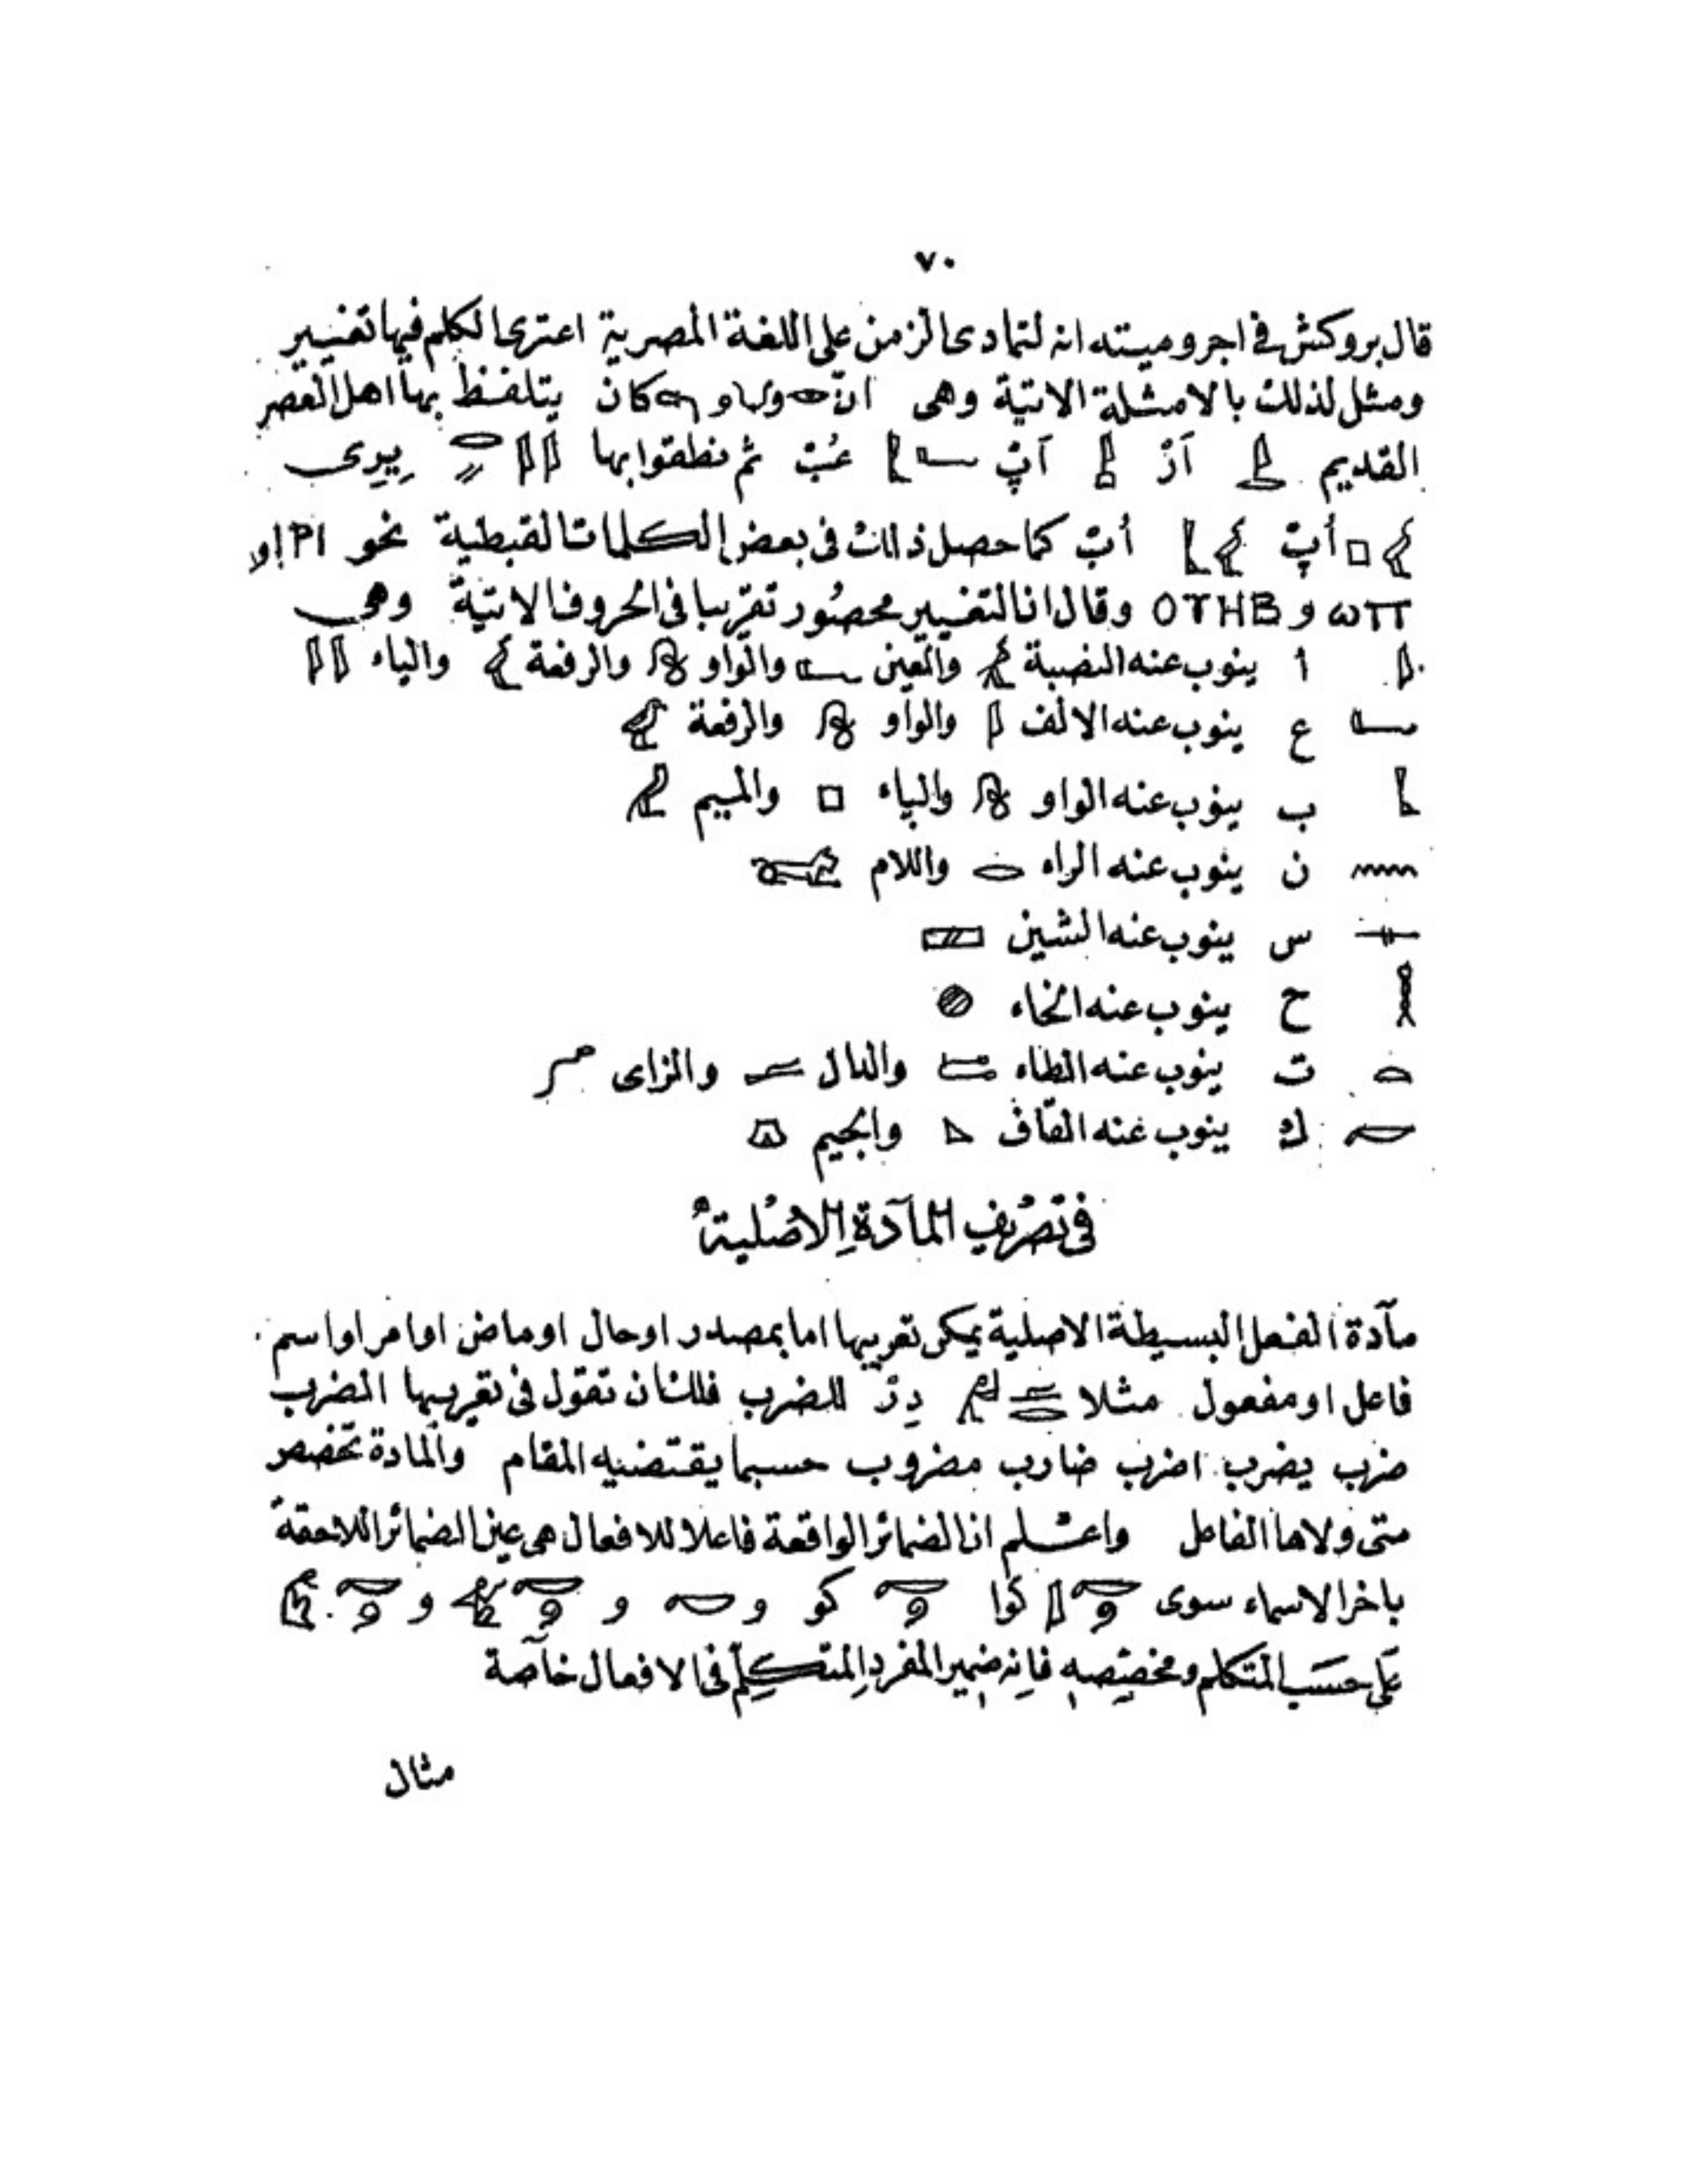 ٧٠
قال بروكش في اجروميته انه لتمادى الزمن على اللغة المصرية اعترى الكلم فيها تغيير
ومثل لذلك بالامثلة الاتية وهى ان 𓁹 و و كان يتلفظ بها اهل العصر
القديم 𓇋𓂋 آرْ 𓇋𓊪 آپْ 𓂝𓃀 عُبْ ثم نطقوا بها 𓇋𓇋𓂋𓏭 يِيرِى
𓅱𓊪 أپْ 𓅱𓃀 أبْ كما حصل ذلك فى بعض الكلمات القبطية نحو ΙΡΙ او
ωΠ و ΟΥΗΒ وقال ان التغيير محصور تقريبا فى الحروف الاتية وهى
𓇋 ا ينوب عنه النصبة 𓄿 والعين 𓂝 والواو 𓍯 والرفعة 𓅱 والياء 𓇋𓇋
𓂝 ع ينوب عنه الالف 𓇋 والواو 𓍯 والرفعة 𓅱
𓃀 ب ينوب عنه الواو 𓍯 والپاء 𓊪 والميم 𓅓
𓈖 ن ينوب عنه الراء 𓂋 واللام 𓃭
𓊃 س ينوب عنه الشين 𓈙
𓎛 ح ينوب عنه الخاء 𓐍
𓏏 ت ينوب عنه الطاء 𓍿 والدال 𓂧 والزاى 𓆓
𓎡 ك ينوب عنه القاف 𓈎 والجيم 𓎼
فى تصريف المآدة الاصلية
مآدة الفعل البسيطة الاصلية يمكن تعريبها اما بمصدر او حال او ماض او امر او اسم
فاعل او مفعول مثلا 𓂧𓂋 دِرْ للضرب فلك ان تقول فى تعريبها الضرب
ضرب يضرب اضرب ضارب مضروب حسبما يقتضيه المقام والمادة تخصص
متى ولاها الفاعل واعلم ان الضمائر الواقعة فاعلا للافعال هى عين الضمائر اللاحقة
باخر الاسماء سوى 𓎡𓏲𓇋 كُوا 𓎡𓏲 كو و 𓎡 و 𓎡𓏲 و 𓎡𓏲
على حسب المتكلم ومخصصه فانه ضمير المفرد المتكلم فى الافعال خآصة
مثال